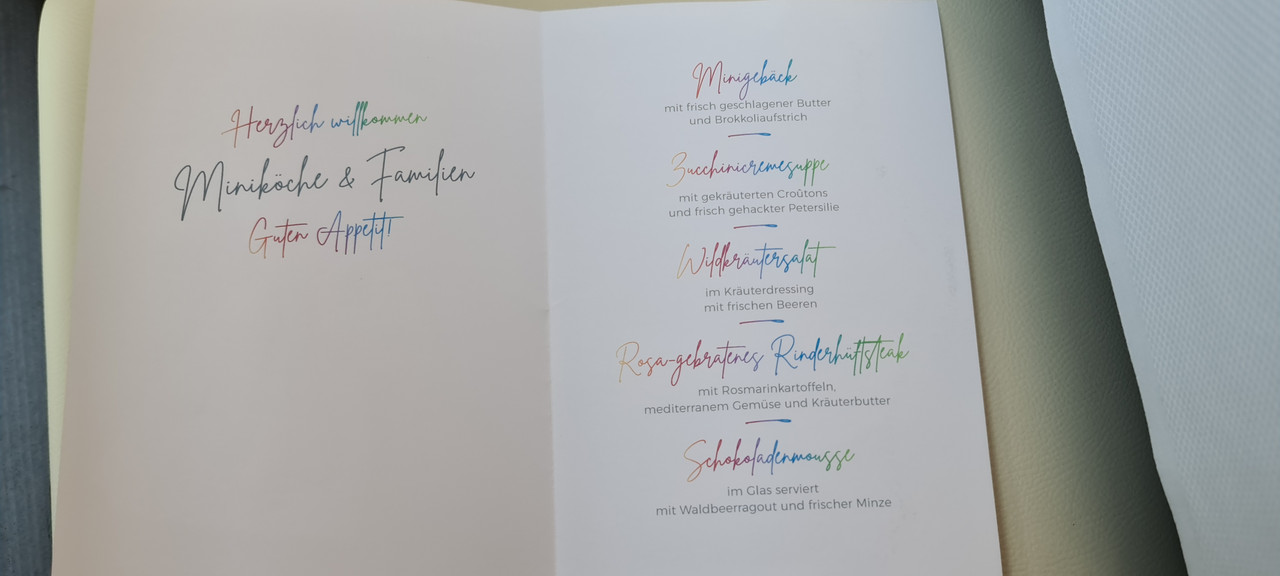 Herzlich willkommen
Miniköche & Familien
Guten Appetit!
Minigebäck
mit frisch geschlagener Butter
und Brokkoliaufstrich
Zucchinicremesuppe
mit gekräuterten Croûtons
und frisch gehackter Petersilie
Wildkräutersalat
im Kräuterdressing
mit frischen Beeren
Rosa-gebratenes Rinderhüftsteak
mit Rosmarinkartoffeln,
mediterranem Gemüse und Kräuterbutter
Schokoladenmousse
im Glas serviert
mit Waldbeerragout und frischer Minze